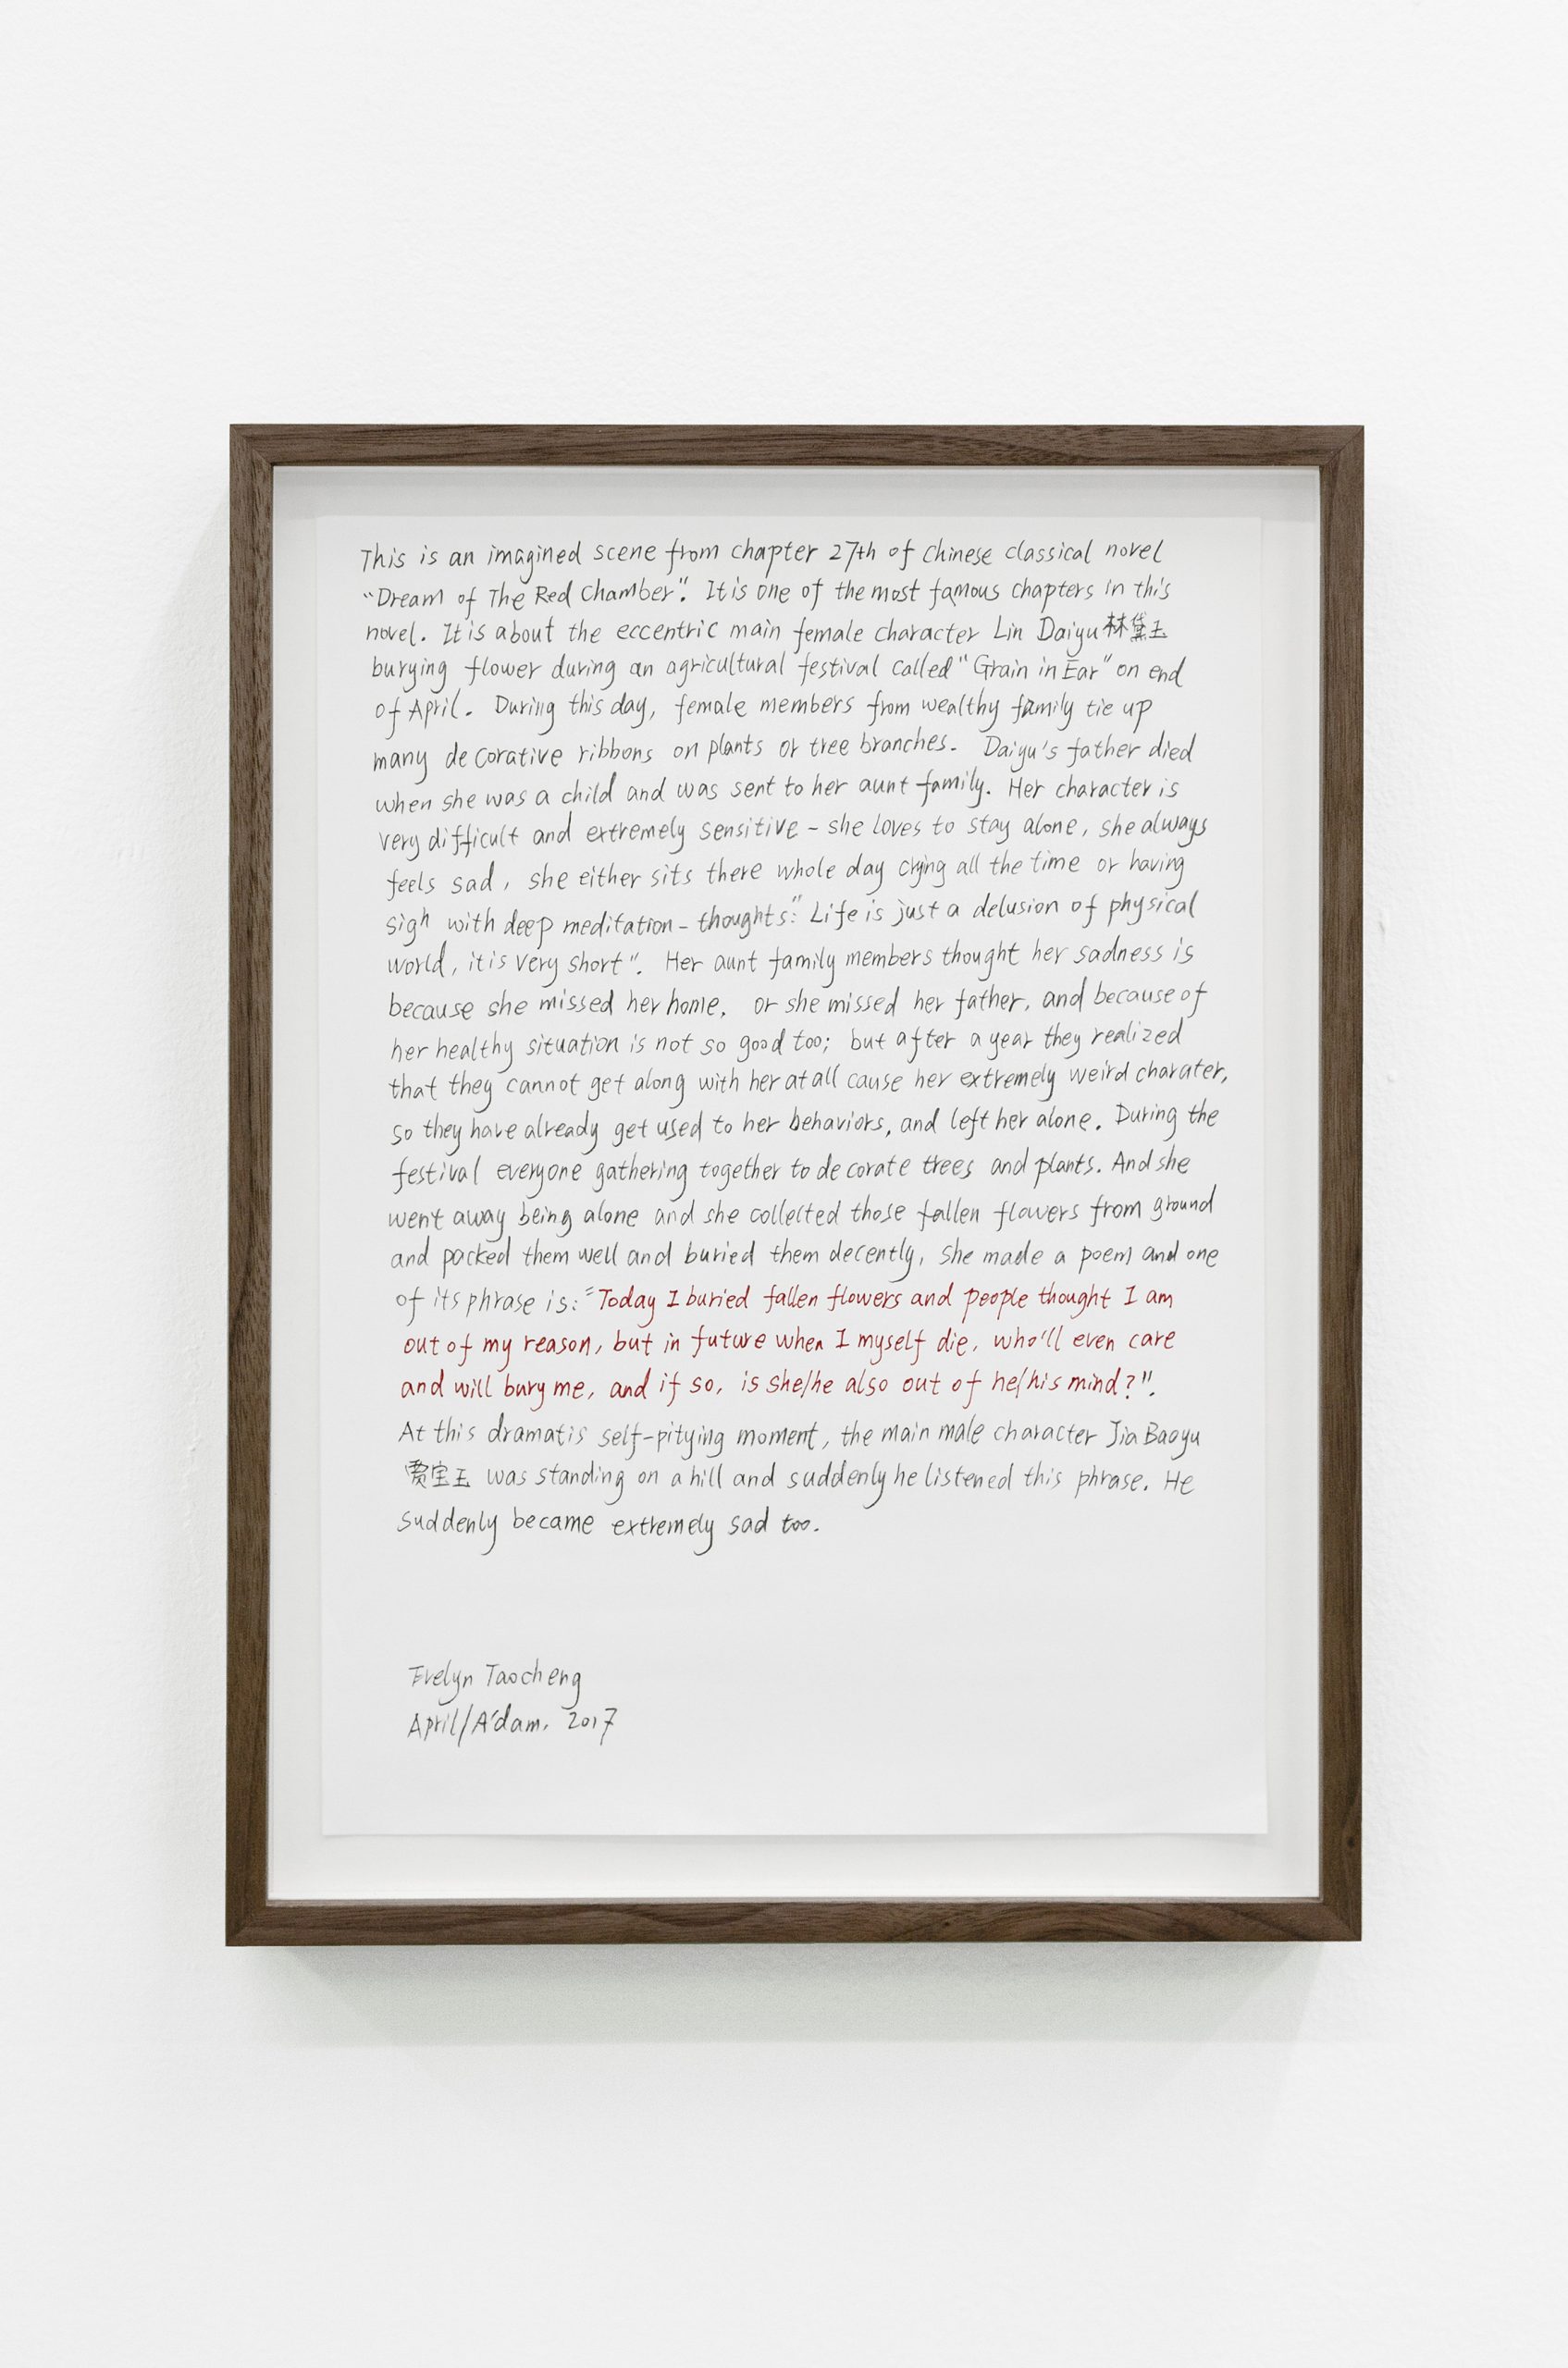 This is an imagined scene from chapter 27th of Chinese classical novel
"Dream of The Red Chamber". It is one of the most famous chapters in this
novel. It is about the eccentric main female character Lin Daiyu 林黛玉
burying flower during an agricultural festival called "Grain in Ear" on end
of April. During this day, female members from wealthy family tie up
many decorative ribbons on plants or tree branches. Daiyu's father died
when she was a child and was sent to her aunt family. Her character is
very difficult and extremely sensitive - she loves to stay alone, she always
feels sad, she either sits there whole day crying all the time or having
sigh with deep meditation - thoughts: "Life is just a delusion of physical
world, it is very short". Her aunt family members thought her sadness is
because she missed her home, or she missed her father, and because of
her healthy situation is not so good too; but after a year they realized
that they cannot get along with her at all cause her extremely weird charater,
so they have already get used to her behaviors, and left her alone. During the
festival everyone gathering together to decorate trees and plants. And she
went away being alone and she collected those fallen flowers from ground
and packed them well and buried them decently, she made a poem and one
of its phrase is: "Today I buried fallen flowers and people thought I am
out of my reason, but in future when I myself die, who'll even care
and will bury me, and if so, is she/he also out of he/his mind?".
At this dramatis self-pitying moment, the main male character Jia Baoyu
贾宝玉 was standing on a hill and suddenly he listened this phrase. He
suddenly became extremely sad too.
Evelyn Taocheng
April/A'dam, 2017